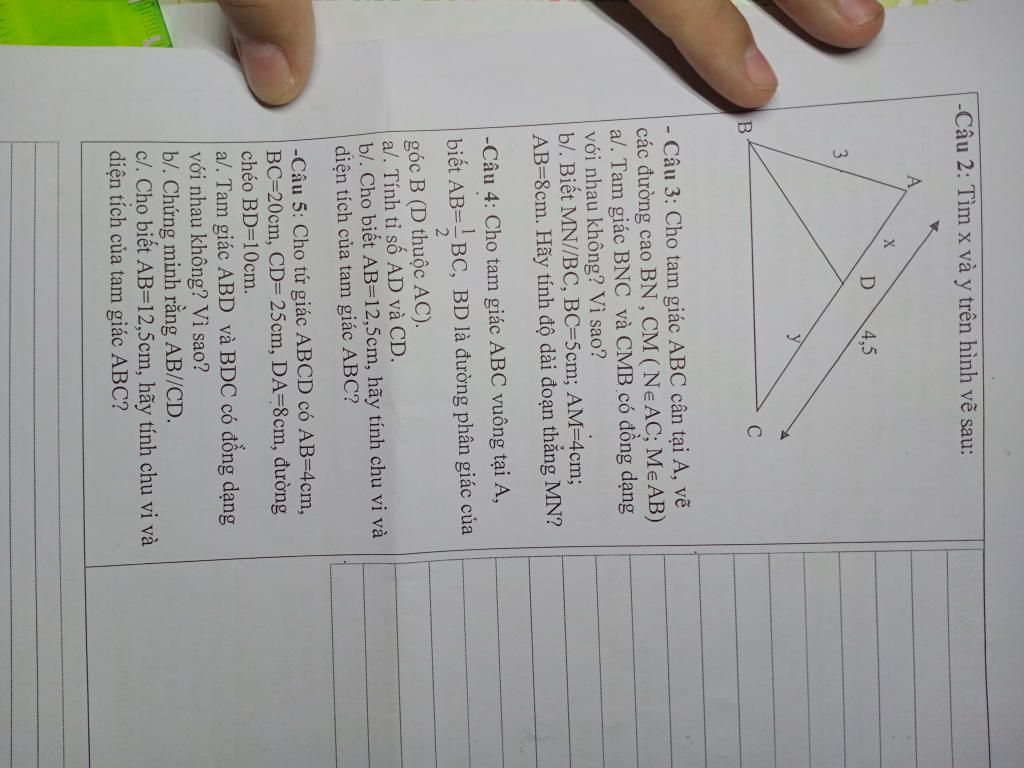 -Câu 2: Tìm x và y trên hình vẽ sau:
A
3
x
D
4,5
y
B
C
- Câu 3: Cho tam giác ABC cân tại A, vẽ
các đường cao BN , CM ( N∈AC; M∈AB)
a/. Tam giác BNC và CMB có đồng dạng
với nhau không? Vì sao?
b/. Biết MN//BC, BC=5cm; AM=4cm;
AB=8cm. Hãy tính độ dài đoạn thẳng MN?
-Câu 4: Cho tam giác ABC vuông tại A,
biết AB=1/2BC, BD là đường phân giác của
góc B (D thuộc AC).
a/. Tính tỉ số AD và CD.
b/. Cho biết AB=12,5cm, hãy tính chu vi và
diện tích của tam giác ABC?
-Câu 5: Cho tứ giác ABCD có AB=4cm,
BC=20cm, CD= 25cm, DA=8cm, đường
chéo BD=10cm.
a/. Tam giác ABD và BDC có đồng dạng
với nhau không? Vì sao?
b/. Chứng minh rằng AB//CD.
c/. Cho biết AB=12,5cm, hãy tính chu vi và
diện tích của tam giác ABC?